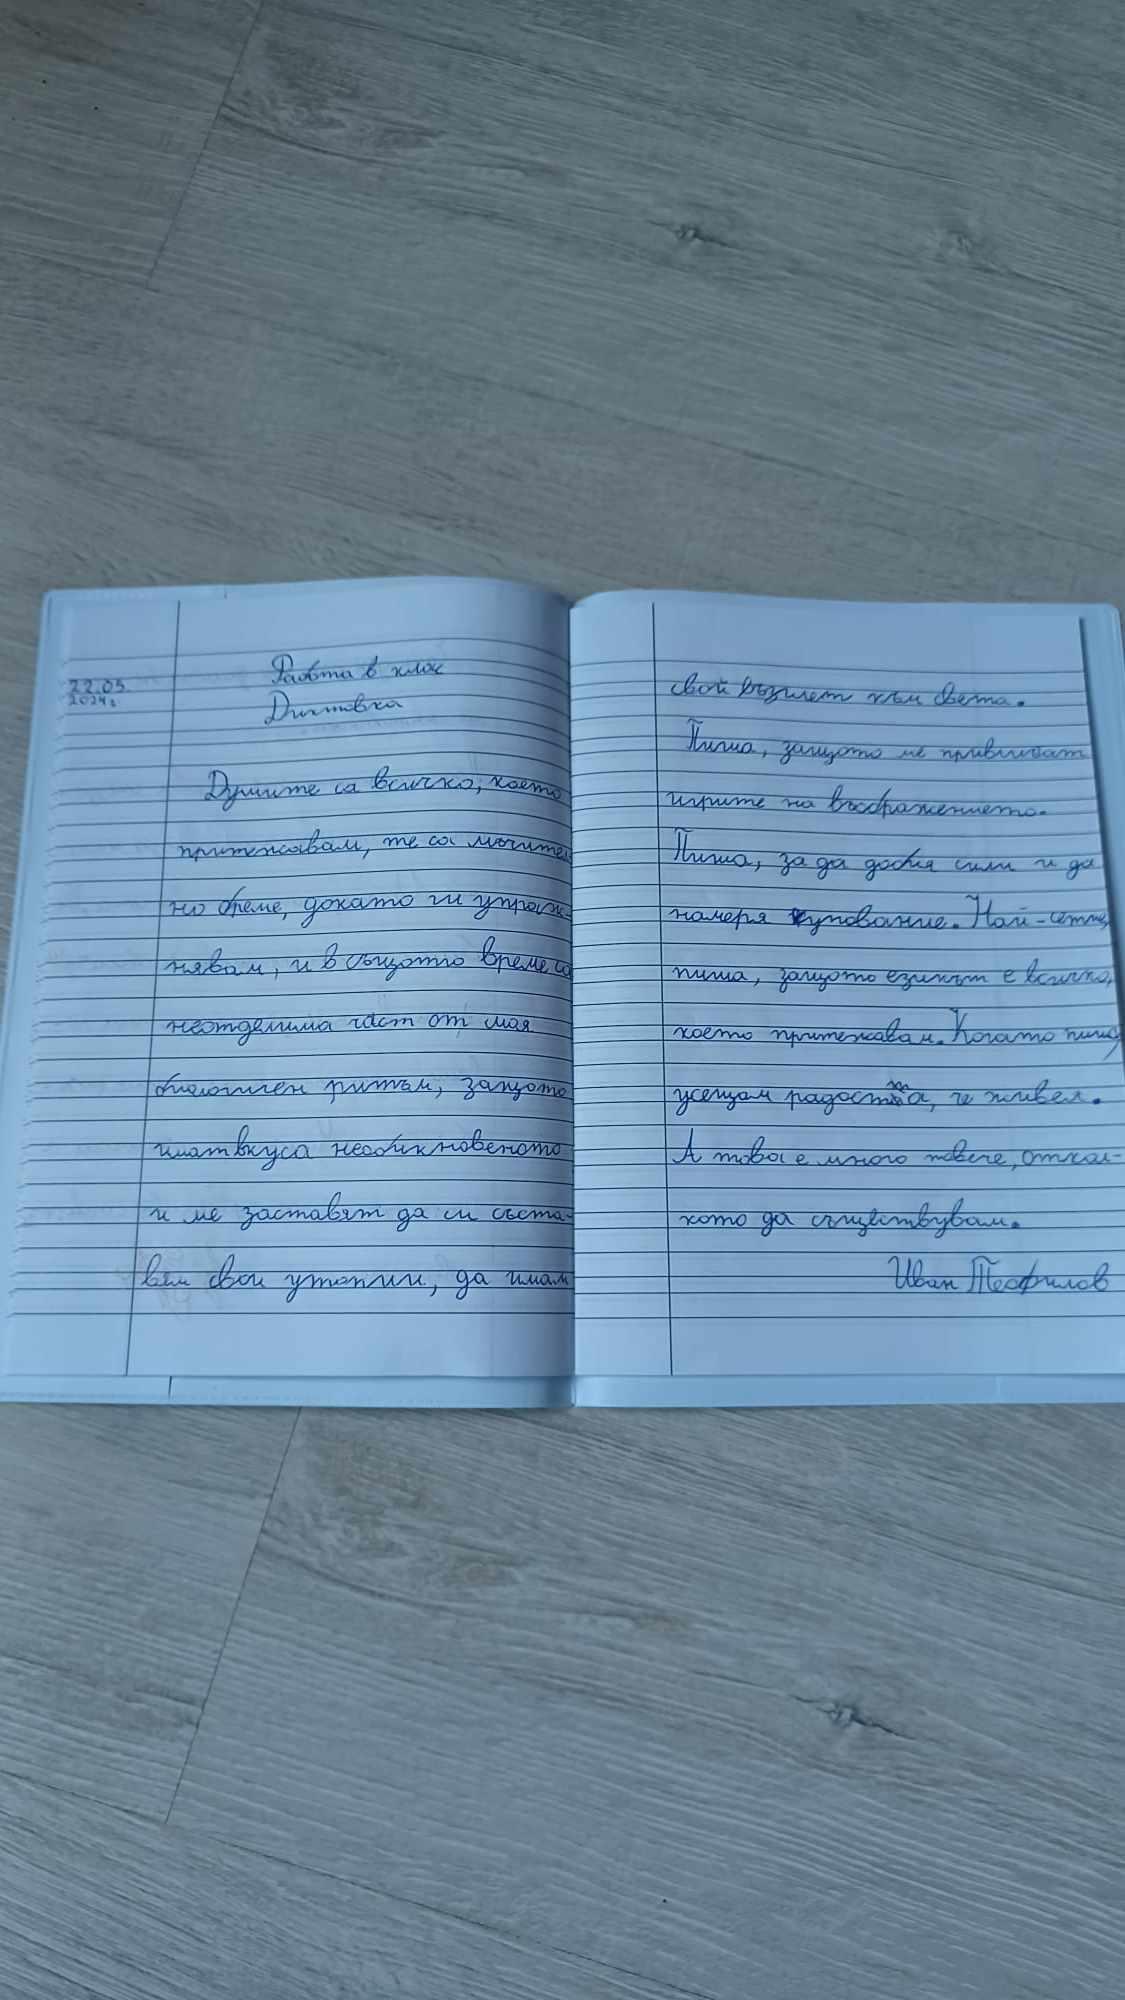 22.05.
2024г.
Работа в клас
Диктовка
Думите са всичко, което
притежавам, те са мъчител-
но бреме, докато ги упраж-
нявам, и в същото време са
неотделима част от моя
биологичен ритъм, защото
имат вкуса необикновеното
и ме заставят да си съста-
вям свои утопии, да имам
свой възглет към света.
Пиша, защото ме привличат
игрите на въображението.
Пиша, за да добия сили и да
намеря упование. Най-сетне,
пиша, защото езикът е всичко,
което притежавам. Когато пиша,
усещам радостта, че живея.
А това е много повече, откол-
кото да съществувам.
Иван Теофилов